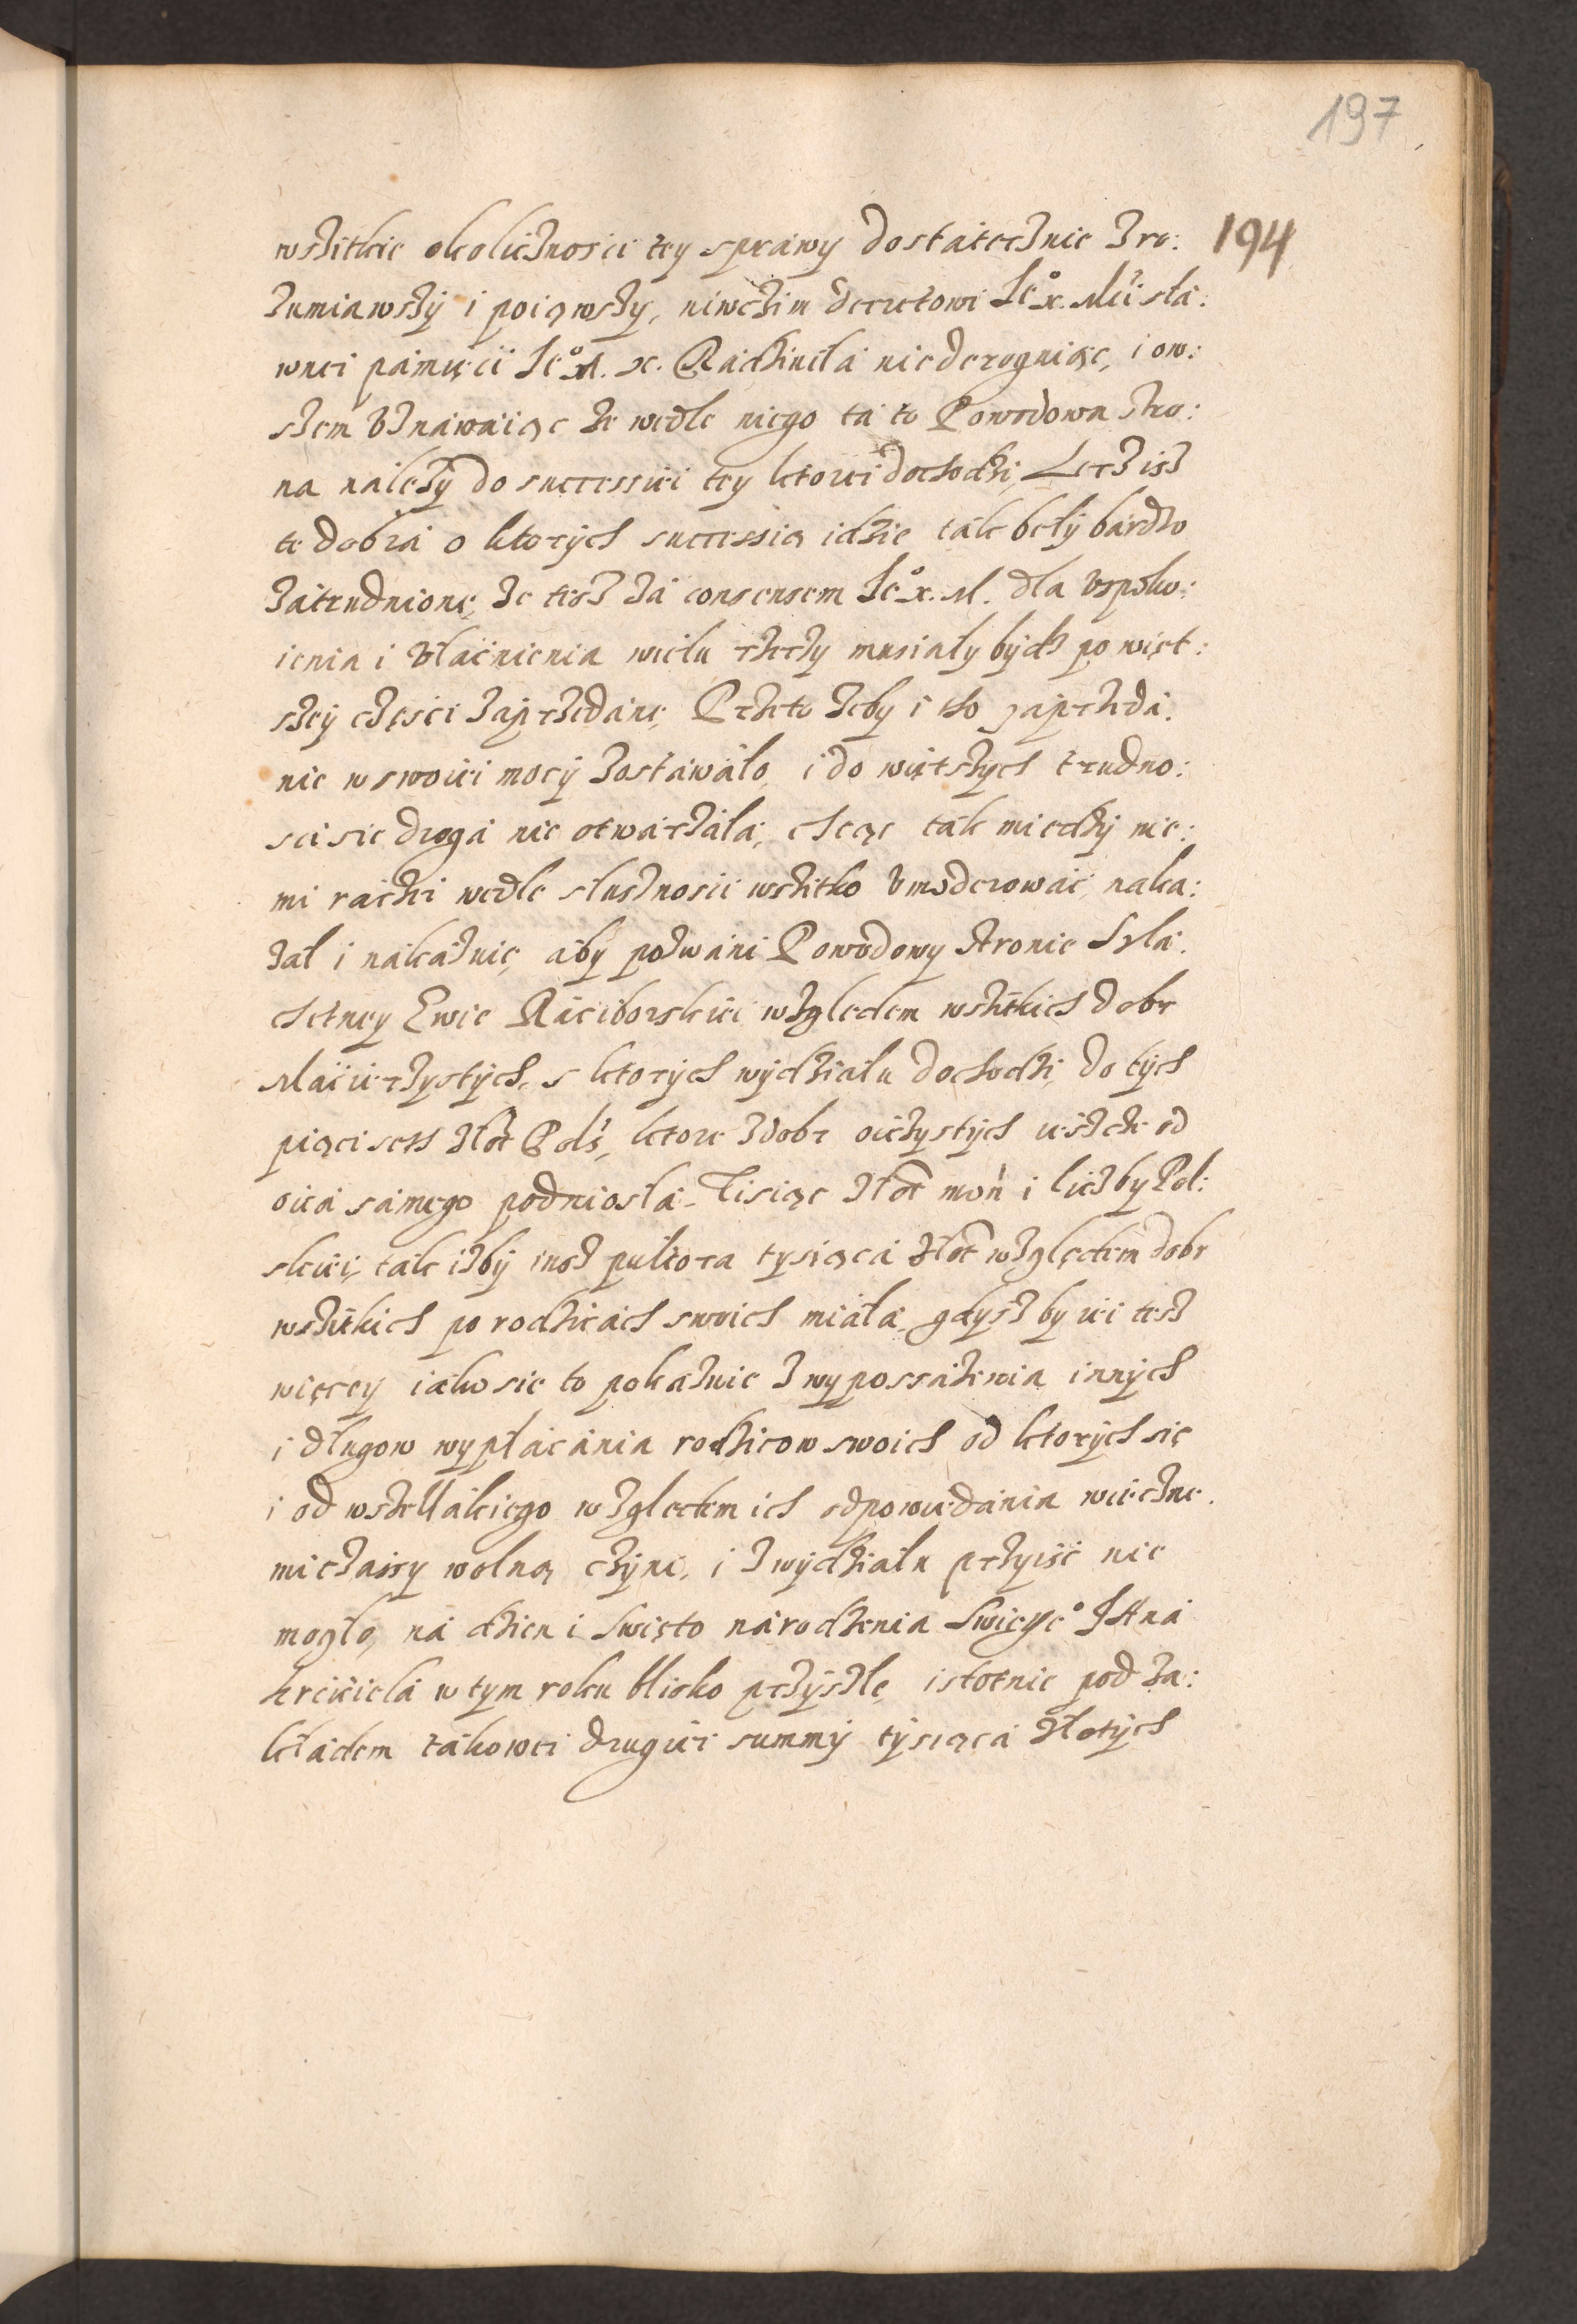 197
wszitkie okolicznosci tey sprawy dostatecznie zro: 194
zumiawszy i poiąwszy, niwczim decretowi Je° x. Mći sła:
wnei pamięci Je° M. x. Radziwiła niederoguiąc, i ow:
szem vznawaiąc że wedle niego ta to Powodowa stro:
na należy do successiei tey ktorei dochodzi, Lecz isz
te dobra o ktorych successią idzie tak beły bardzo
zatrudnione, że tesz za consensem Je° x. M. dla vspoko:
ienia i vłacnienia wielu rzeczy musiały bydz po więt:
szey częsci zaprzedane, Przeto żeby i tho zaprzeda:
nie w swoiei mocy zostawało, i do większych trudno:
sci sie droga nie otwarzała, chcąc tak miedzy nie:
mi raczei wedle słusznosci wszitko vmoderować, naka:
zał i nakazuie, aby pozwani Powodowy stronie Szla:
chetney Ewie Raciborskiei względem wszitkich dobr
Maciezystych, s ktorych wydziału dochodzi, do tych
pięci seth złot Pols, ktore z dobr oiczystych ieszcze od
oica samego podniosła Tisiąc złot moń i liczby Pol:
skiei, tak iżby inosz pułtora tysiąca złot względem dobr
wszitkich po rodzicach swoich miała, gdyszby iei tesz
więcey iako sie to pokazuie z wypossażenia innych
i długow wypłacania rodzicow swoich od ktorych się
i od wszellakiego względem ich odpowiedania wiecżne:
mi czassy wolną czyni, i z wydziału przyiść nie
mogło, na dzien i swięto narodzenia Swięge° Jana
krciciela w tym roku blisko przyszłe, istotnie pod za:
kładem takowei drugiei summy tysiąca złotych